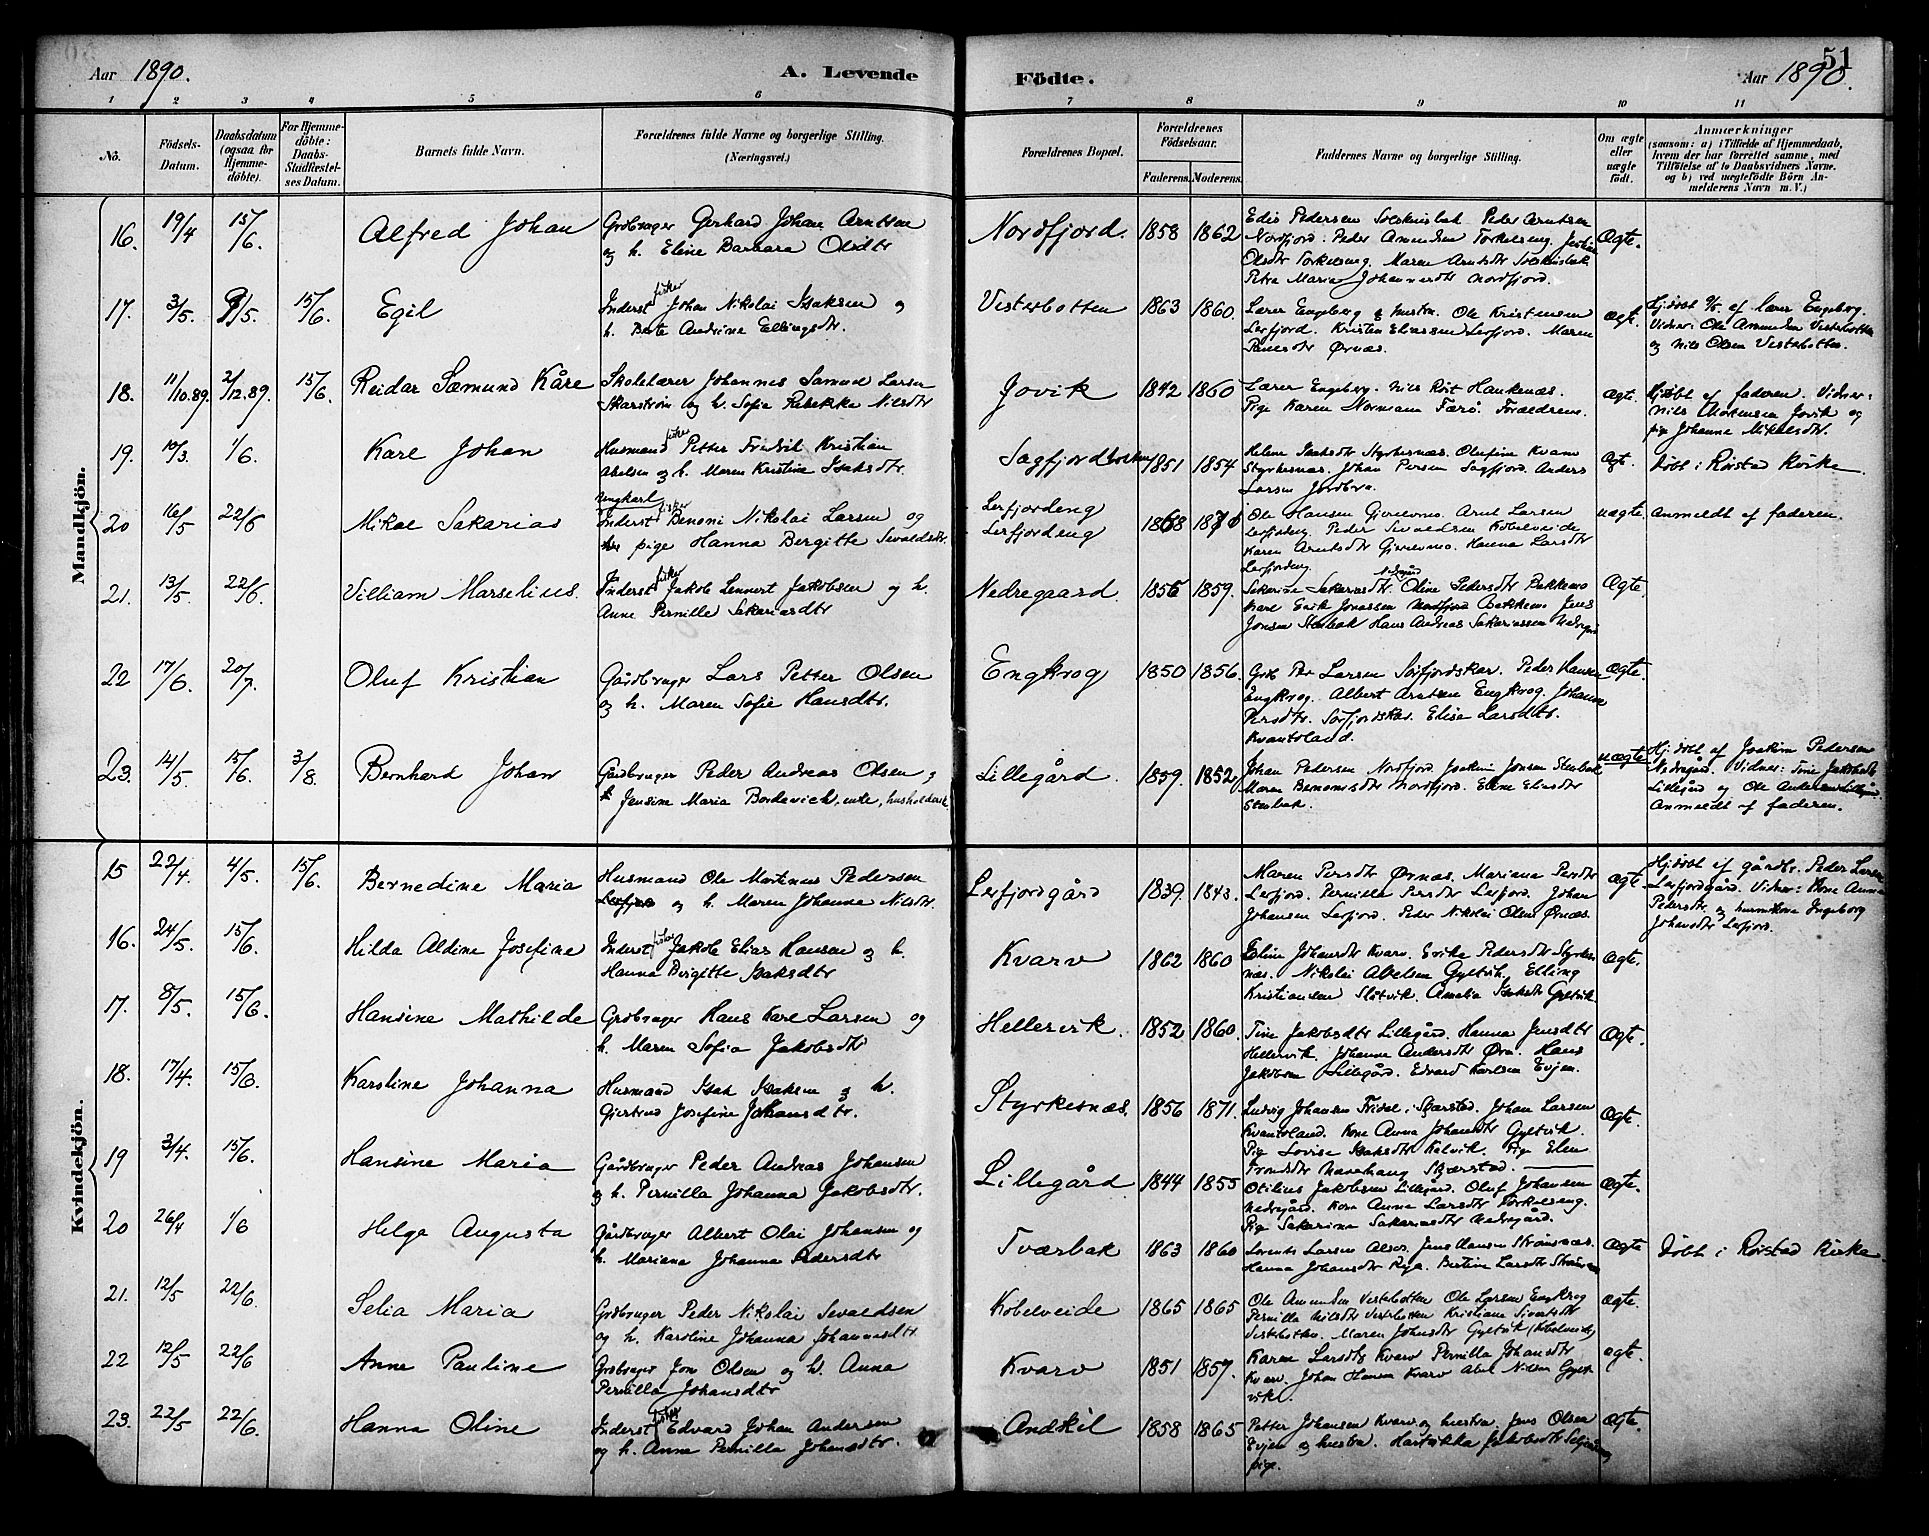 Aar 1890.
A. Levende
Födte.
51
Aar 1890.
1 2 3 4 5 6 7 8 9 10 11
No.
Födsels-
Datum.
Daabsdatum
(ogsaa for
Hjemme-
döbte).
For Hjemme-
döbte:
Daabs-
Stadfæstel-
ses Datum.
Barnets fulde Navn.
Forældrenes fulde Navne og borgerlige Stilling.
(Næringsvei.)
Forældrenes Bopæl.
Forældrenes
Födselsaar.
Faderens. Moderens.
Faddernes Navne og borgerlige Stilling.
Om ægte
eller
uægte
födt.
Anmærkninger
(saasom: a) i Tilfælde af Hjemmedaab,
hvem der har forrettet samme, med
Tilföielse af to Daabsvidners Navne.
og b) ved uægtefödte Börn An-
melderens Navn m. V.)
Mandkjön.
16. 19/4 15/6. Alfred Johan
Grdbruger Gerhard Johan Arntsen
og h. Eline Barbara Olsdtr
Nordfjord. 1858 1862
Edis Pedersen Solskinsbak Peder Arntsen
Nordfjord. Peder Amundsen Torkelseng.
Olsdtr Torkelseng. Maren Arntsdtr Solskinsbak
Petra Maria Johannesdtr Nordfjord.
Ægte.
17. 3/5. 9/5. 15/6. Egil
fisker
Inderst Johan Nikolai Isaksen og
h. Berte Andrine Ellingsdtr.
Vesterbotten 1863 1860.
Lærer Engeberg & hustru. Ole Kristensen
Lerfjord. Kristen Eliassen Lerfjord. Maren
Ørnæs.
ægt.
Hjdøbt 9/5. af lærer Engeberg.
Vidner: Ole Amundsen Vesterbotten
og Nils Olsen Vesterbotten.
18. 11/10.89. 2/12.89. 15/6. Reidar Sæmund Kåre
Skolelærer Johannes Samuel Larsen
Skarstrøm og h. Sofie Rebekka Nilsdtr
Jovik 1842 1860
Lærer Engeberg. Nils Røst Haukenæs.
Pige Karen Normann Færø. Forældrene.
Ægt.
Hjdøbt af faderen. Vidner:
Nils Mortensen Jovik og
pige Johanna Mikalsdtr.
19. 10/3. 1/6. Karl Johan
fisker
Husmand Petter Fredrik Kristian
Abelsen og h. Maren Kristine Isaksdtr.
Sagfjordbotten 1851 1854
Helene Isaksdtr Styrkesnæs. Olufine Kvarv
Styrkesnæs. Johan Persen Sagfjord. Anders
Larsen Jordbro.
Ægt.
Døbt i Røistad Kirke.
20 16/5 22/6 Mikal Sakarias
ungkarl
fisker
Inderst Benoni Nikolai Larsen og
pige Hanna Bergitte Sevaldsdtr.
Lerfjordeng
Lerfjordeng
1868 1870
Ole Hansen Gjerelvmo. Arnt Larsen
Lerfjordeng Peder Sevaldsen Kobelveide
Karen Arntsdtr Gjerelvmo. Hanna Larsdtr
Lerfjordeng
uægte.
Anmeldt af faderen.
21. 13/5. 22/6. Villiam Marselius.
fisker
Inderst Jakob Lennert Jakobsen og h.
Anne Pernille Sakariasdtr
Nedregaard 1856 1859.
Nedregård
Sakarine Sakariasdtr. Oline Pedersdtr Bakkemo
Karl Erik Jonassen Nordfjord Bakkemo Jens
Jonsen Stenbak Hans Andreas Sakariassen Nedregård
Ægte.
22 17/6. 20/7. Oluf Kristian
Gårdbruger Lars Petter Olsen
og h. Maren Sofie Hansdtr.
Engkrog 1850 1856.
Grdb Per Larsen Sørfjordskar. Peder Hansen
Engkrog. Albert Arntsen Engkrog. Johanna
Persdtr. Sørfjordskar. Elise Larsdtr.
Kvantoland.
Ægte.
23. 14/5. 15/6. 3/8. Bernhard Johan
Gårdbruger Peder Andreas Olsen og
Jensine Maria Bordevich, enke, husholderske
Lillegård. 1859. 1852
Johan Pedersen Nordfjord Joakim Jonsen Stenbak
Maren Benonisdtr Nordfjord. Eline Eliasdtr
Stenbak.
uægte
Hj.døbt af Joakim Pedersen
Nedregård. Vidner: Tine Jakobsdtr
Lillegård og Ole Andersen Lillegård.
Anmeldt af faderen.
Kvindekjön.
15 22/4. 4/5. 15/6. Bernedine Maria
Husmand Ole Martinus Pedersen
og h. Maren Johanna Nilsdtr.
Lerfjordgård 1839. 1843.
Maren Persdtr Ørnæs. Mariana Persdtr
Lerfjord. Pernilla Persdtr Lerfjord. Johan
Johansen Lerfjord. Peder Nikolai Olsen Ørnæs.
ægt
Hjdøbt af gårdbr. Peder Larsen
Lerfjordgård. Vidner: Kone Anna
Pedersdtr og huuskone Ingeborg
Johansdtr Lerfjord.
16. 24/5. 15/6. Hilda Aldine Josefine
fisker
Inderst Jakob Elias Hansen og h.
Hanna Birgitte Isaksdtr
Kvarv 1862 1860
Johansdtr Kvarv. Erika Pedersdtr Styrkes-
næs. Nikolai Abelsen Gyltvik. Elling
Kristiansen Slåtvik. Amalia Isaksdtr Gyltvik
Ægte.
17. 8/5. 15/6. Hansine Mathilde
Grdbruger Hans Karl Larsen og
h. Maren Sofia Jakobsdtr
Hellarvik. 1852 1860.
Tine Jakobsdtr Lillegård. Hanna Jensdtr
Hellervik. Johanna Andersdtr Øra. Hans
Jakobsen Lillegård. Edvard Karlsen Evjen.
Ægte.
18. 17/4. 15/6. Karoline Johanna
Husmand Isak Isaksen og h.
Gjertrud Josefine Johansdtr.
Styrkesnæs. 1856 1871.
Ludvig Johansen Fridal i Skjerstad. Johan Larsen
Kvantoland. Kone Anna Johansdtr Gyltvik.
Pig Lovise Isaksdtr Kalvik. Pige Elen
Trondsdtr Skjærstad.
Ægte.
19 3/4. 15/6. Hansine Maria
Gårdbruger Peder Andreas Johansen
og h. Pernilla Johanna Jakobsdtr.
Lillegård 1844 1855
Otilius Jakobsen Lillegård. Oluf Johansen
Nedregård. Kone Anne Larsdtr Torkelseng.
Pig Sakarina Sakariasdtr Nedregård.
Ægte.
20 26/4 1/6 Helga Augusta
Gårdbruger Albert Olai Johansen og
h. Mariana Johanna Pedersdtr
Tværbak 1863 1860
Lorents Larsen Jens Hansen Strømsnæs.
Hanna Johansdtr Bertine Larsdtr
Ægte
Døbt i Røistad Kirke
21. 12/5 22/6. Selia Maria
Grdbruger Peder Nikolai Sevaldsen
og h. Karoline Johanna Johannesdtr.
Kobelveide 1865 1865
Ole Amundsen Vesterbotten Ole Larsen Engkrog
Pernilla Nilsdtr Vesterbotten Kristiane Sivertsdtr
Vesterbotten. Maren Johnsdtr Gyltvik (Kobelveide)
Ægte.
22 12/5 22/6 Anne Pauline
Grdbruger Jon Olsen og h. Anna
Pernilla Johansdtr
Kvarv 1851 1857.
Karen Larsdtr Kvarv Pernilla Johansdtr
Kvarv. Johan Hansen Kvarv Abel Nilsen Gylt-
vik.
ægte.
23. 22/5 22/6. Hanna Oline
fisker
Inderst Edvard Johan Andersen
og h. Anna Pernilla Johansdtr.
Andkil 1858 1865
Petter Johansen Kvarv og hustru. Jens Olsen
Evjen og hustru. Hartvikka Jakobsdtr
pige.
Ægte.